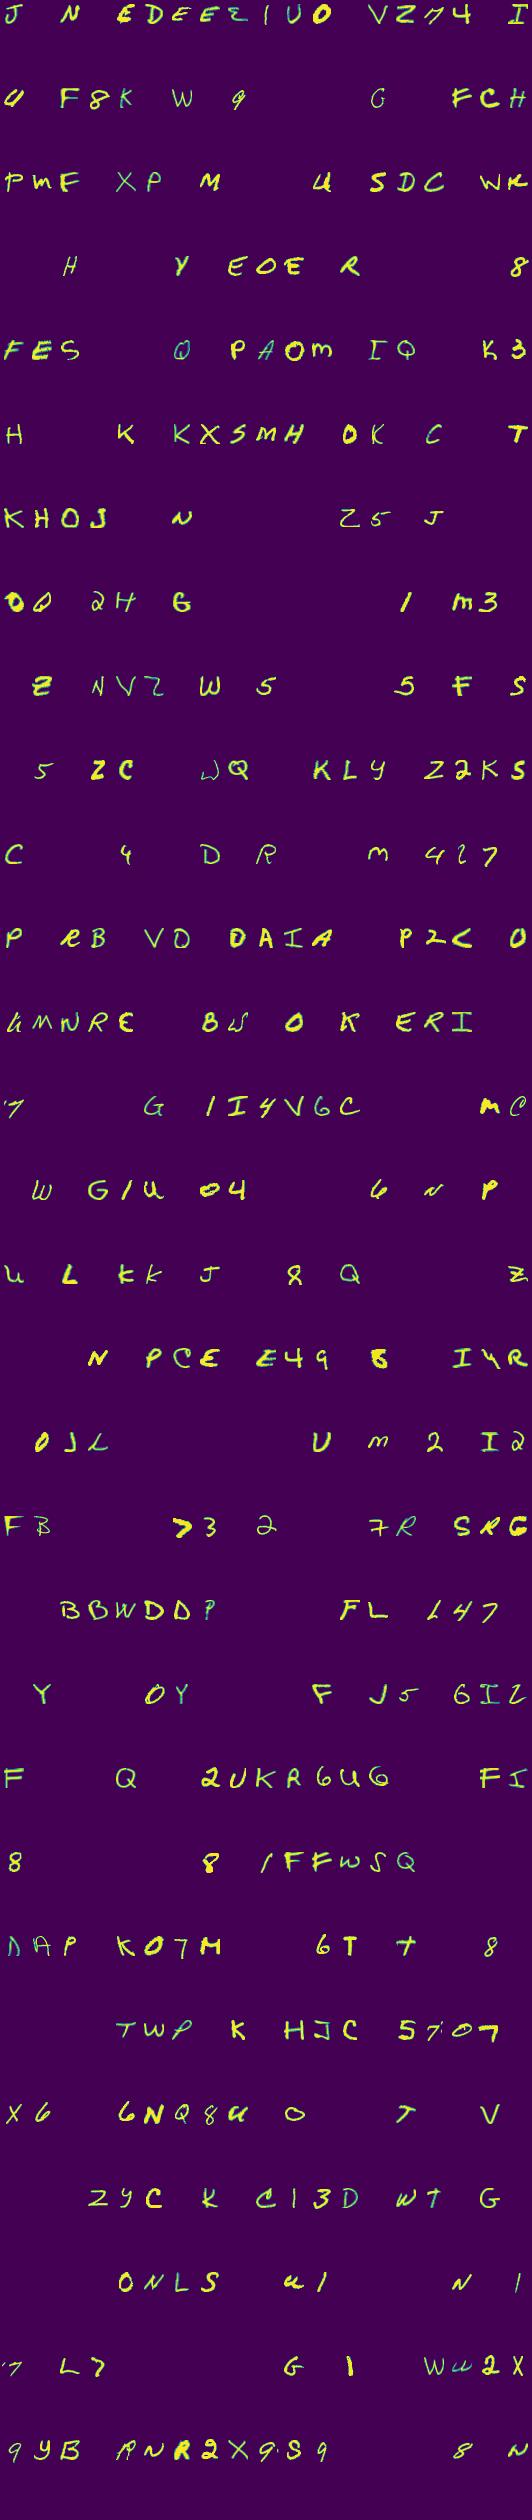 J N EDEEE1U0 VZ74 I
U F8K W 9 G FCH
PMF XP M U SDC WK
H Y EOER 8
FES Q PAOM IQ K3
H K KXSMH OK C T
KHOJ N Z5 J
0Q 2H G 1 M3
Z NVZ W 5 5 F S
5 ZC WQ KLY Z2KS
C 4 D R M 427
P RB VD DAIA P2C 0
GMNRE 8W 0 K ERI
7 G 1I4VGC MC
W G1U 04 6 N P
U L KK J 8 Q Z
N PCE E49 8 I4R
0JL U M 2 I2
FB 73 2 7R SRG
BBWDDP FL L47
Y 0Y F J5 6IZ
F Q 2UKR6U6 FI
8 8 1FFWSQ
DAP K07M 6T T 8
TWP K HJC 5707
X6 6NQ8U 0 T V
ZYC K C13D WT G
ONLS U1 N 1
7 L7 G 1 WW2X
9YB ANR2X9S9 8 N